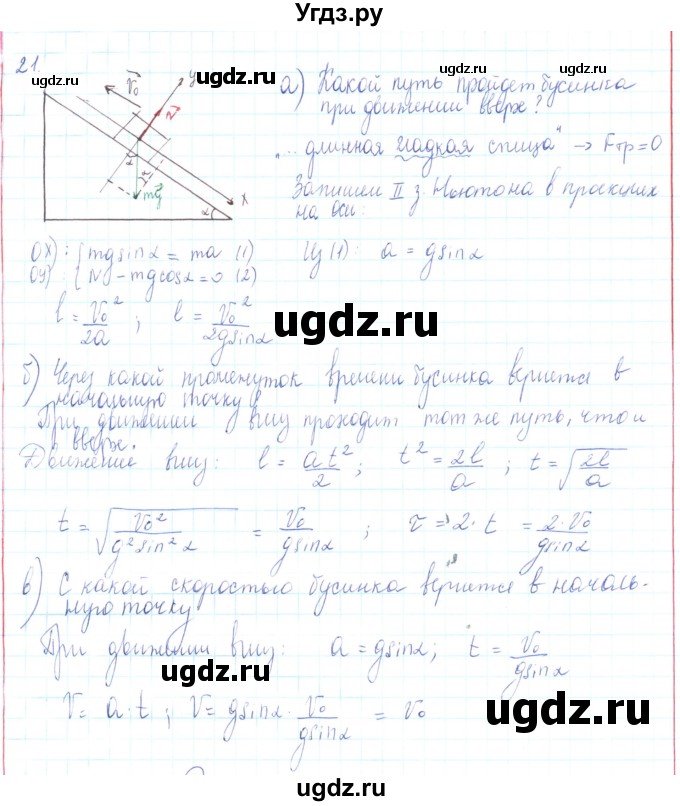 Угдз.ру
21.
y
V₀
N
mg
α
α
α
x
а) Какой путь пройдет бусинка
при движении вверх?
"... длинная гладкая спица" → Fтр = 0
Запишем II з. Ньютона в проекциях
на оси:
OX) : { mgsinα = ma (1)
OY) : { N - mgcosα = 0 (2)
Из (1): a = gsinα
l = V₀²/2a ; l = V₀²/2gsinα
ugdz.ru
ugdz.ru
б) Через какой промежуток времени бусинка вернется в
начальную точку?
При движении вниз проходит тот же путь, что и
вверх.
Движение вниз: l = at²/2 ; t² = 2l/a ; t = √(2l/a)
ugdz.ru
ugdz.ru
t = √(V₀²/g²sin²α) = V₀/gsinα ; τ = 2·t = 2·V₀/gsinα
в) С какой скоростью бусинка вернется в началь-
ную точку
ugdz.ru
ugdz.ru
При движении вниз: a = gsinα ; t = V₀/gsinα
V = a·t ; V = gsinα · V₀/gsinα = V₀
ugdz.ru
ugdz.ru
ugdz.ru
ugdz.ru